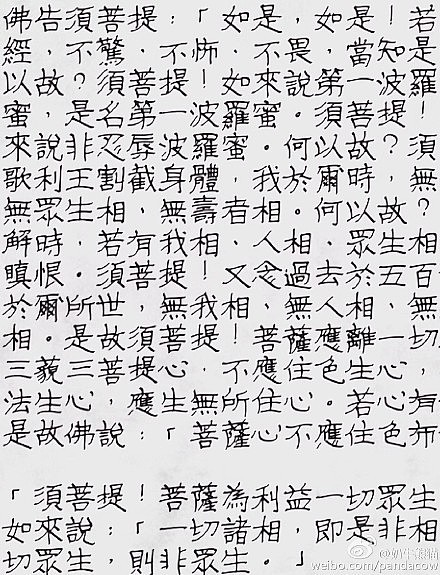 佛告須菩提：「如是，如是！若
經，不驚、不怖、不畏，當知是
以故？須菩提！如來說第一波羅
蜜，是名第一波羅蜜。須菩提！
來說非忍辱波羅蜜。何以故？須
歌利王割截身體，我於爾時，無
無眾生相，無壽者相。何以故？
解時，若有我相、人相、眾生相
瞋恨。須菩提！又念過去於五百
於爾所世，無我相、無人相、無
相。是故須菩提！菩薩應離一切
三藐三菩提心，不應住色生心，
法生心，應生無所住心。若心有
是故佛說：「菩薩心不應住色布
「須菩提！菩薩為利益一切眾生
如來說：「一切諸相，即是非相
切眾生，則非眾生。」
@奶牛熊貓
weibo.com/pandacow